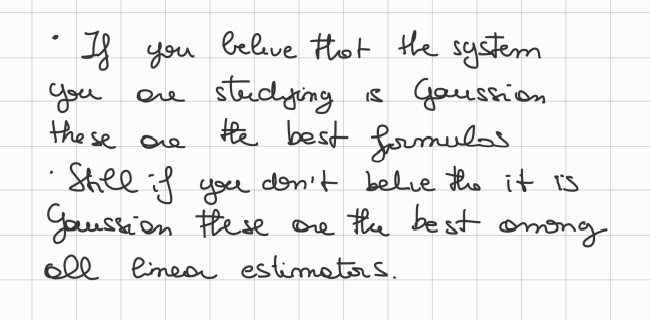 · If you belive that the system
you are studying is Gaussian
these are the best formulas
· Still if you don't belive tha it is
Gaussian these are the best among
all linear estimators.